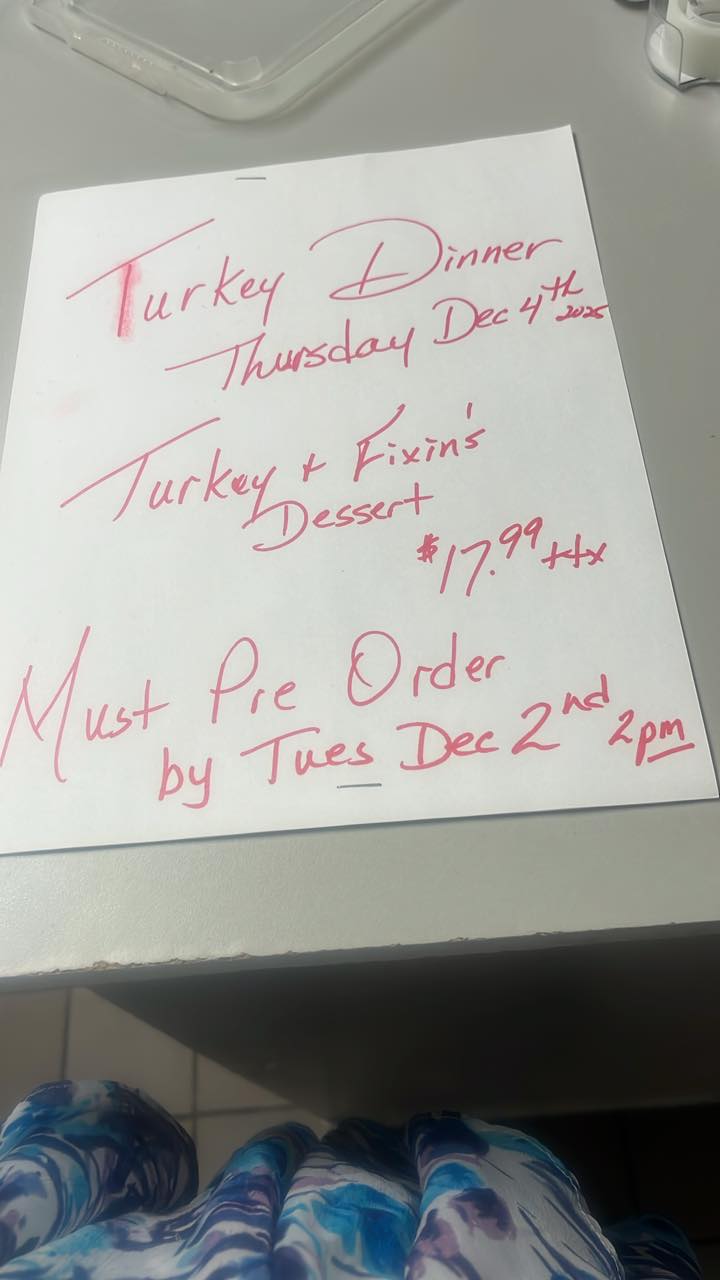 Turkey Dinner
Thursday Dec 4th 2025
Turkey + Fixin's
Dessert
$17.99 +tx
Must Pre Order
by Tues Dec 2nd 2pm